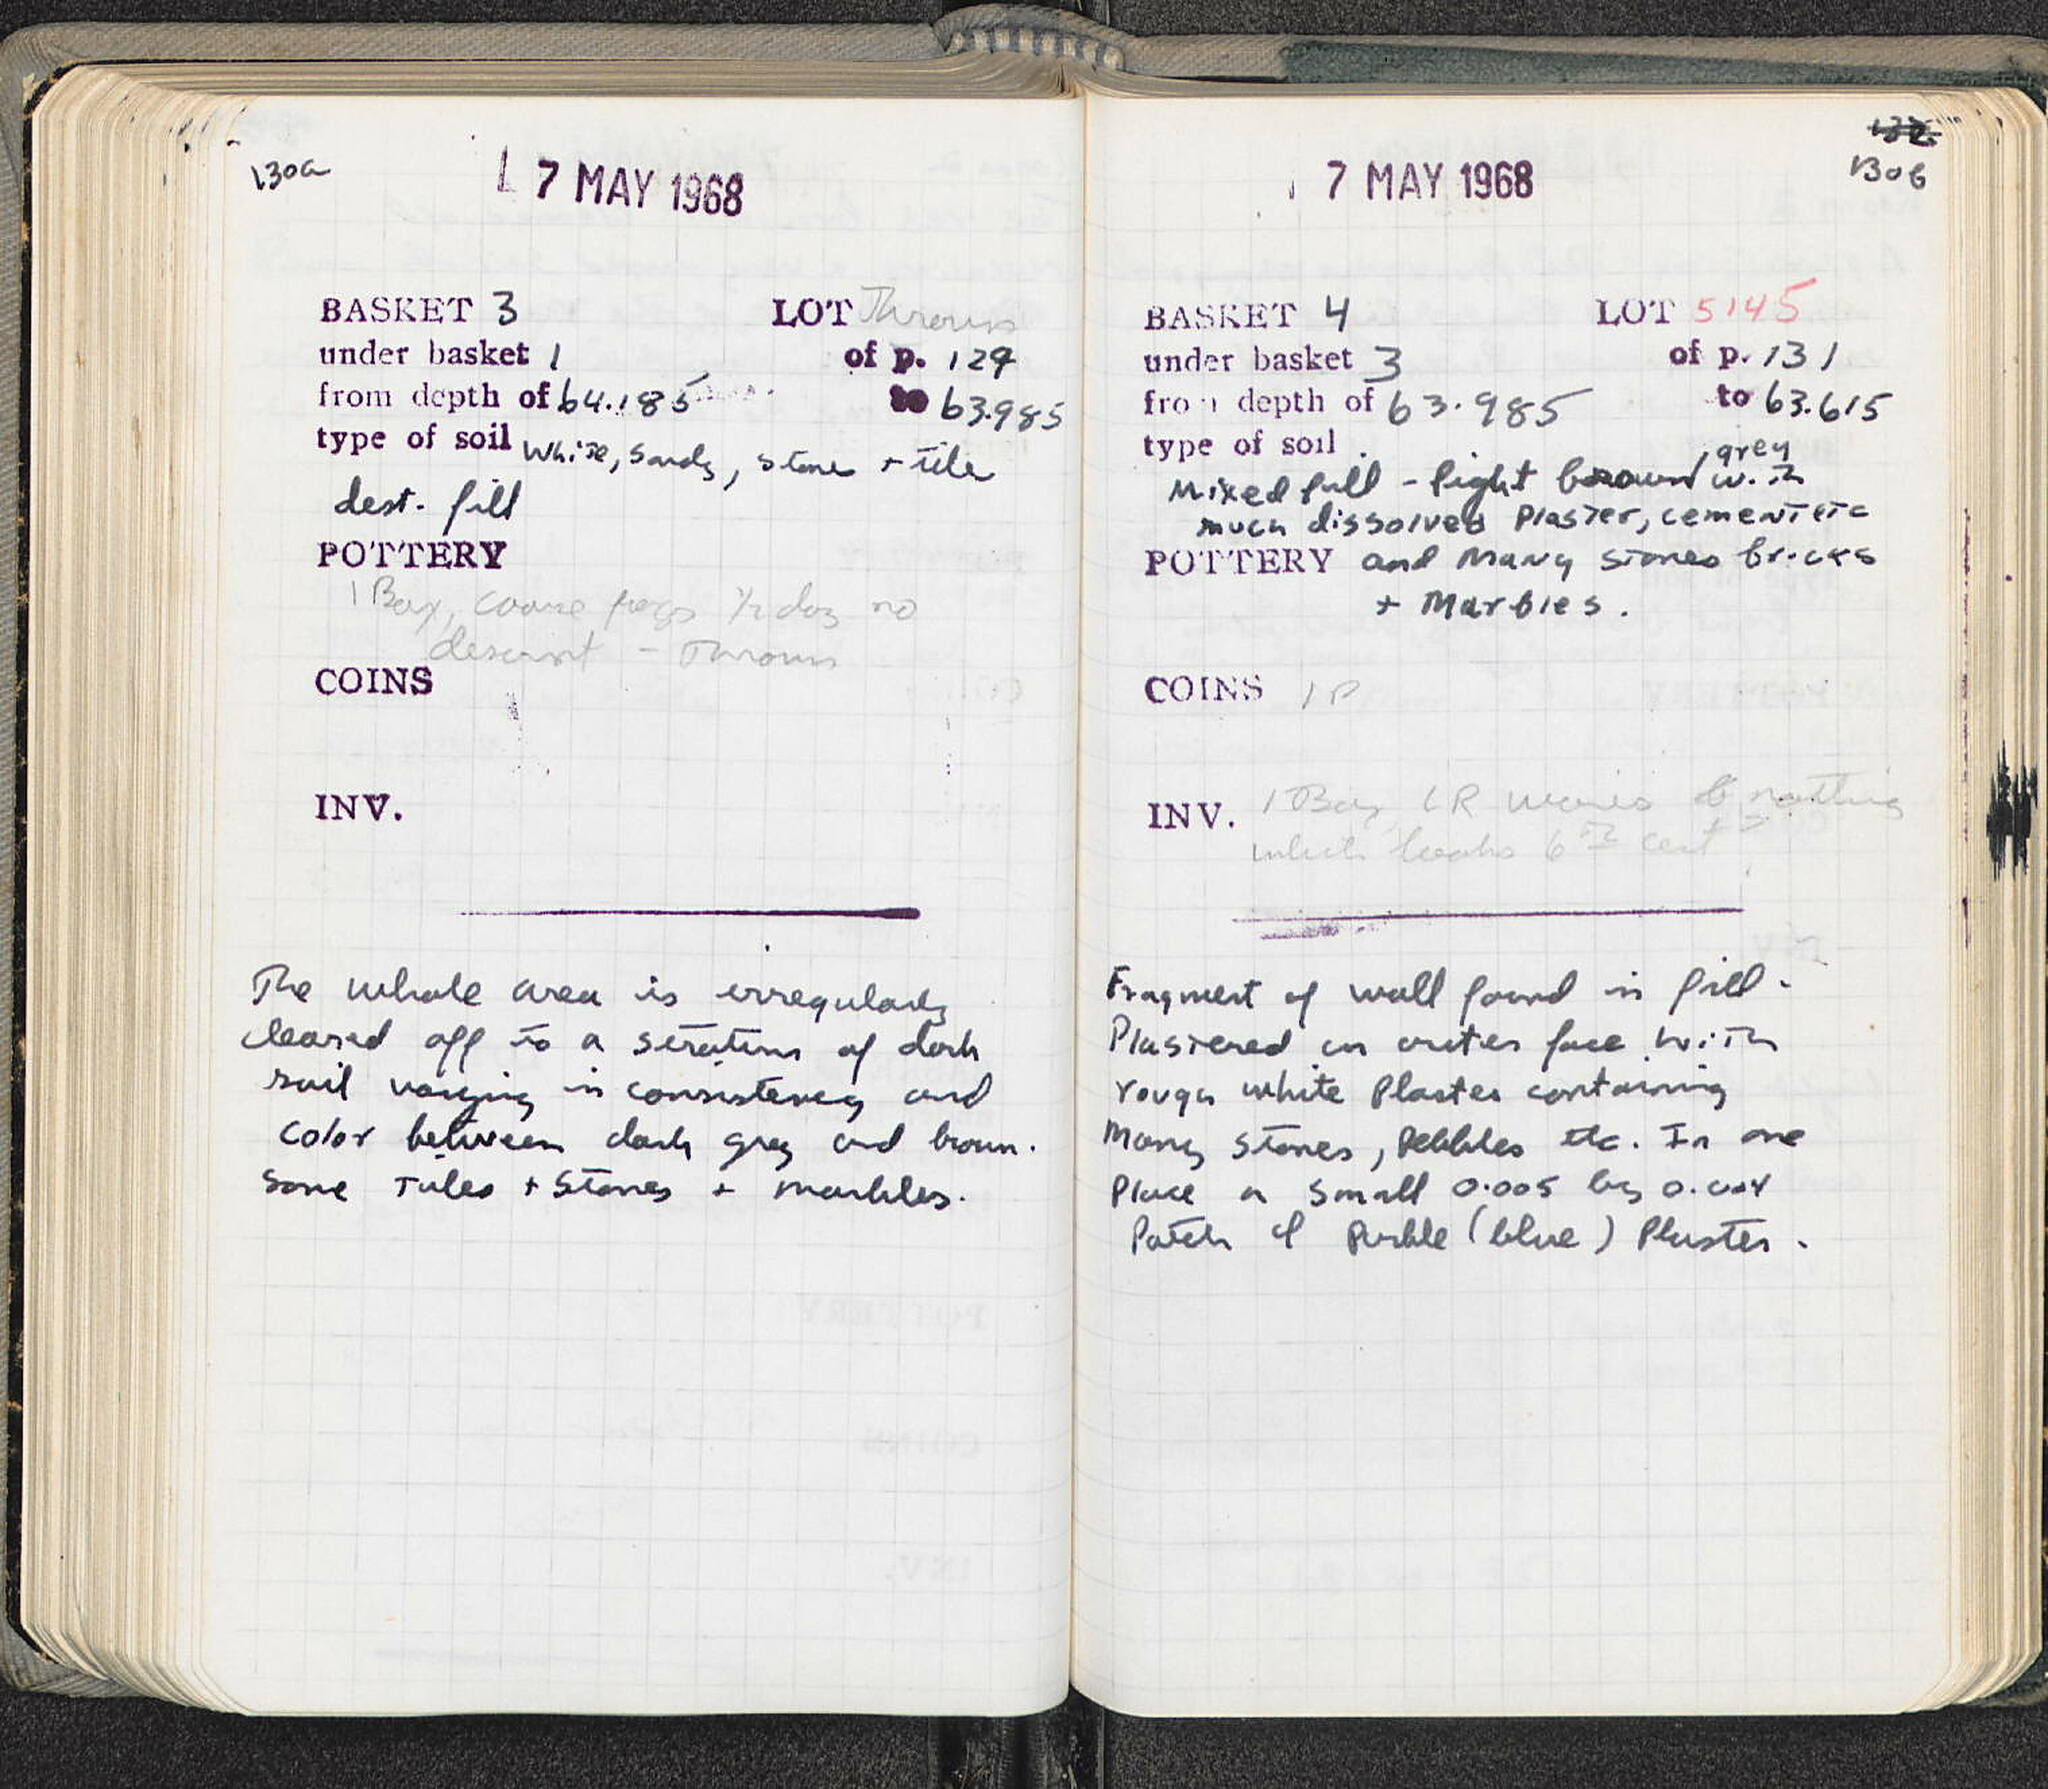 130a
7 MAY 1968
BASKET 3 LOT Thrown
under basket 1 of p. 129
from depth of 64.185 to 63.985
type of soil White, sandy, stone + tile
dest. fill
POTTERY
1 Bag, coarse frags ½ doz no
descript - Thrown
COINS
INV.
The whole area is irregularly
cleared off to a stratum of dark
soil varying in consistency and
color between dark grey and brown.
Some Tiles + Stones + marbles.
132
130b
7 MAY 1968
BASKET 4 LOT 5145
under basket 3 of p. 131
from depth of 63.985 to 63.615
type of soil
Mixed fill - light brown, grey with
much dissolved Plaster, cement etc
POTTERY and Many stones bricks
+ Marbles.
COINS 1 P
INV. 1 Bag, LR wares nothing
which looks 6th cent
Fragment of wall found in fill.
Plastered on outer face with
rough white Plaster containing
Many Stones, Pebbles etc. In one
Place a small 0.005 by 0.004
Patch of Purple (blue) Plaster.